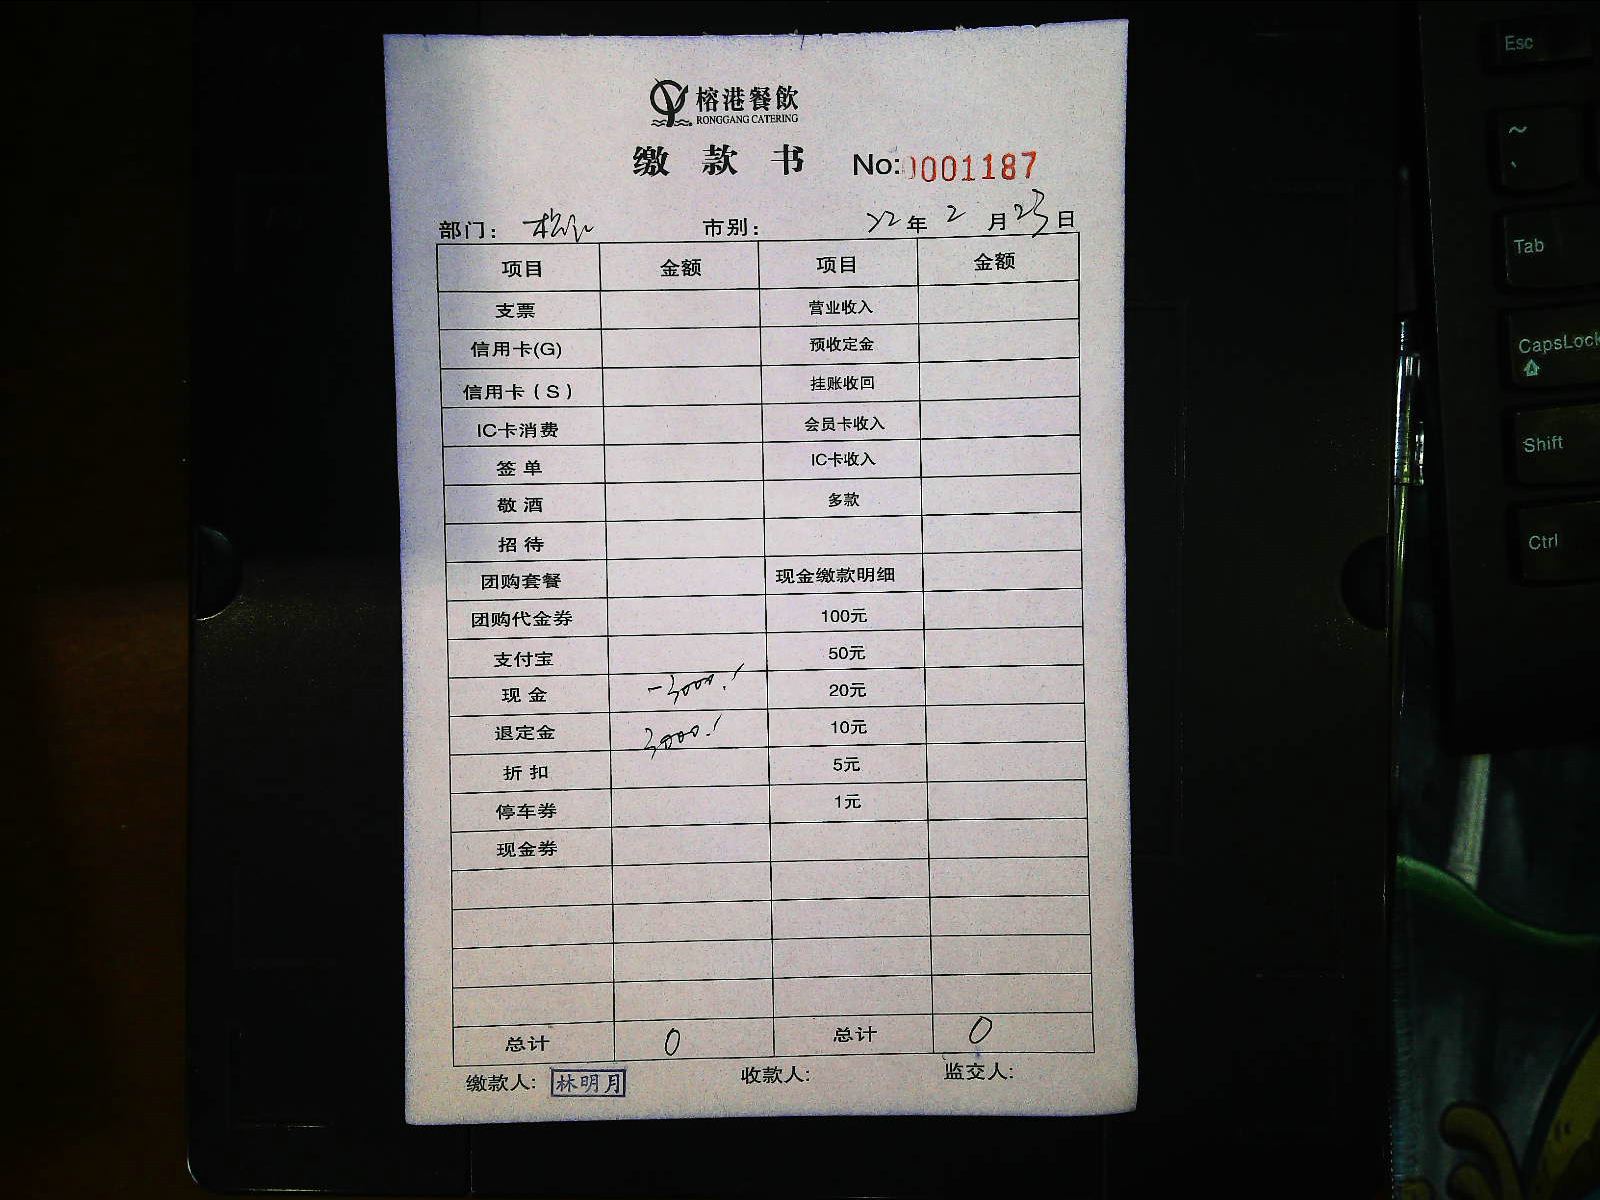 榕港餐飲
RONGGANG CATERING
缴款书 No:0001187
部门： 市别： 22年2月23日
项目 金额 项目 金额
支票 营业收入
信用卡(G) 预收定金
信用卡（S） 挂账收回
IC卡消费 会员卡收入
签单 IC卡收入
敬酒 多款
招待
团购套餐 现金缴款明细
团购代金券 100元
支付宝 50元
现金 -3000.- 20元
退定金 3000.- 10元
折扣 5元
停车券 1元
现金券
总计 0 总计 0
缴款人: 林明月 收款人: 监交人:
Esc
~
Tab
CapsLock
Shift
Ctrl